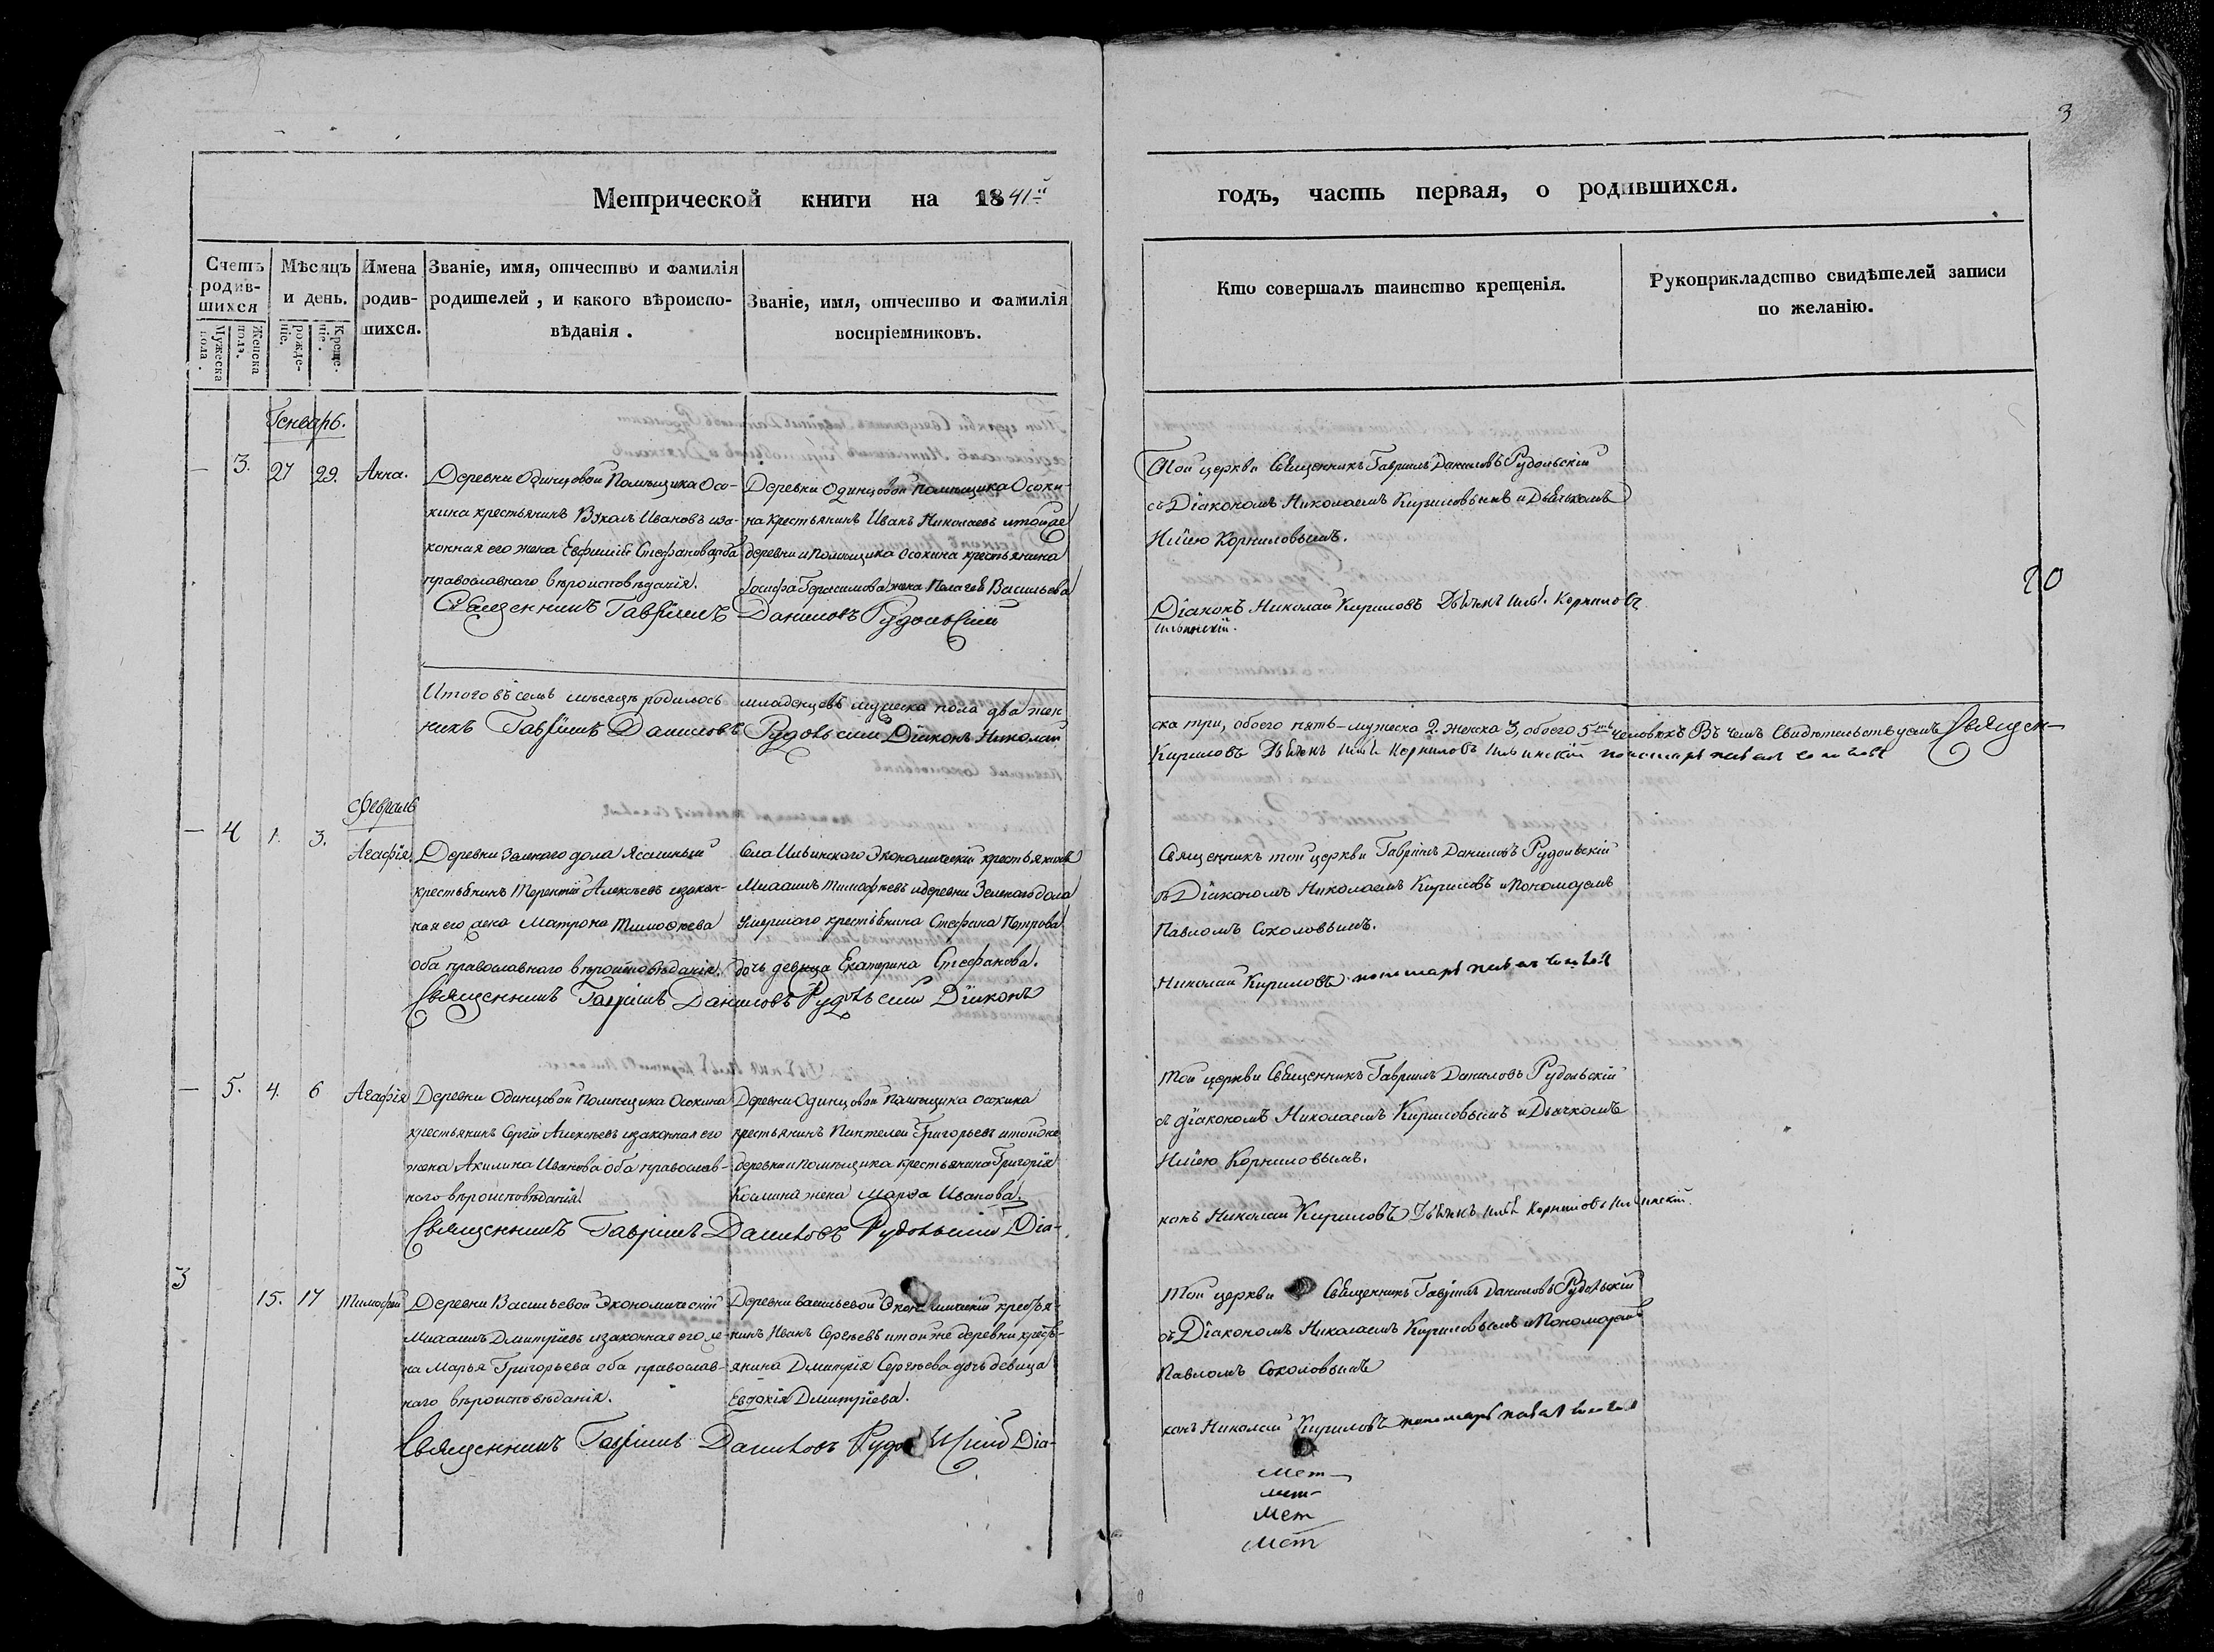 3
Метрической книги на 1841й
годъ, часть первая, о родившихся.
Счетъ родив-шихся
Мужеска пола.
Женска пола.
Мѣсяцъ и день.
рожде-ніе.
Креще-ніе.
Имена родив-шихся.
Званіе, имя, отчество и фамилія родителей, и какого вѣроиспо-вѣданія.
Званіе, имя, отчество и фамилія воспріемниковъ.
Кто совершалъ таинство крещенія.
Рукоприкладство свидѣтелей записи по желанію.
Генварь.
— 3. 27 29. Анна.
Деревни Одинцовой Помѣщика Осо-
кина крестьянинъ Вуколъ Ивановъ иза-
конная его жена Евфимія Стефанова оба
православнаго вѣроисповѣданія.
Деревни Одинцовой помѣщика Осоки-
на крестьянинъ Иванъ Николаевъ итойже
деревни и помѣщика Осокина крестьянина
Іосифа Герасимова жена Пелагея Васильева
Священникъ Гавріилъ Даниловъ Рудольскій
Той церкви Священникъ Гавріилъ Даниловъ Рудольскій
съ Діакономъ Николаемъ Кириловымъ и Дьячкомъ
Иліею Корниловымъ.
Діаконъ Николай Кириловъ Дьячекъ Илья Корниловъ
Ильинскій.
20
Итого въ семъ мѣсяцѣ родилось младенцевъ мужеска пола два жен
ска три, обоего пять — мужеска 2. женска 3, обоего 5ть человѣкъ Въ чемъ Свидѣтельствуемъ Священ-
никъ Гавріилъ Даниловъ Рудольскій Діаконъ Николай
Кириловъ Дьячекъ Илья Корниловъ Ильинскій пономарь Павелъ Соколовъ
Февраль
— 4 1. 3. Агафія.
Деревни Зеленаго дола Ясашный
крестьянинъ Терентій Алексѣевъ изакон-
ная его жена Матрона Тимофѣева
оба православнаго вѣроисповѣданія.
Села Ильинскаго Экономическій крестьянинъ
Михаилъ Тимофѣевъ идеревни Зеленаго дола
Умершаго крестьянина Стефана Петрова
дочь девица Екатерина Стефанова.
Священникъ Гавріилъ Даниловъ Рудольскій Діаконъ
Священникъ той церкви Гавріилъ Даниловъ Рудольскій
съ Діакономъ Николаемъ Кириловъ и Пономаремъ
Павломъ Соколовымъ.
Николай Кириловъ пономарь Павелъ Соколовъ
— 5. 4. 6 Агафія
Деревни Одинцовой Помѣщика Осокина
крестьянинъ Сергій Алексѣевъ изаконная его
жена Акилина Иванова оба православ-
наго вѣроисповѣданія.
Деревни Одинцовой Помѣщика Осокина
крестьянинъ Пантелей Григорьевъ итойже
деревни и помѣщика крестьянина Григорія
Космина жена Марѳа Иванова.
Священникъ Гавріилъ Даниловъ Рудольскій Діа-
Той церкви Священникъ Гавріилъ Даниловъ Рудольскій
съ діакономъ Николаемъ Кириловымъ и Дьячкомъ
Иліею Корниловымъ.
конъ Николай Кириловъ Дьячекъ Илья Корниловъ Ильинскій.
3 15. 17 Тимофей
Деревни Васильевой Экономическій
Михаилъ Дмитріевъ изаконная его же-
на Марья Григорьева оба православ-
наго вѣроисповѣданія.
Деревни Васильевой Экономическій крестья-
нинъ Иванъ Сергѣевъ итойже деревни кресть-
янина Дмитрія Сергѣева дочь девица
Евдокія Дмитріева.
Священникъ Гавріилъ Даниловъ Рудольскій Діа-
Той церкви Священникъ Гавріилъ Даниловъ Рудольскій
съ Діакономъ Николаемъ Кириловымъ и Пономаремъ
Павломъ Соколовымъ
конъ Николай Кириловъ пономарь Павелъ Соколовъ
Мет
мет
Мет
Мет